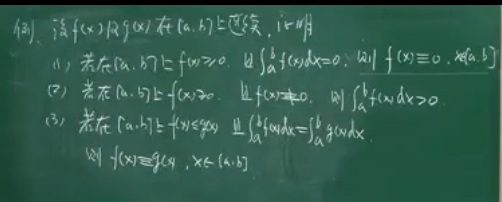 例3. 设f(x)及g(x)在[a,b]上连续,证明
(1) 若在[a,b]上f(x)≥0. 且∫ₐᵇf(x)dx=0, 则f(x)≡0, x∈[a,b]
(2) 若在[a,b]上f(x)≥0. 且f(x)≢0. 则∫ₐᵇf(x)dx>0
(3) 若在[a,b]上f(x)≤g(x) 且∫ₐᵇf(x)dx=∫ₐᵇg(x)dx.
则f(x)≡g(x), x∈[a,b]